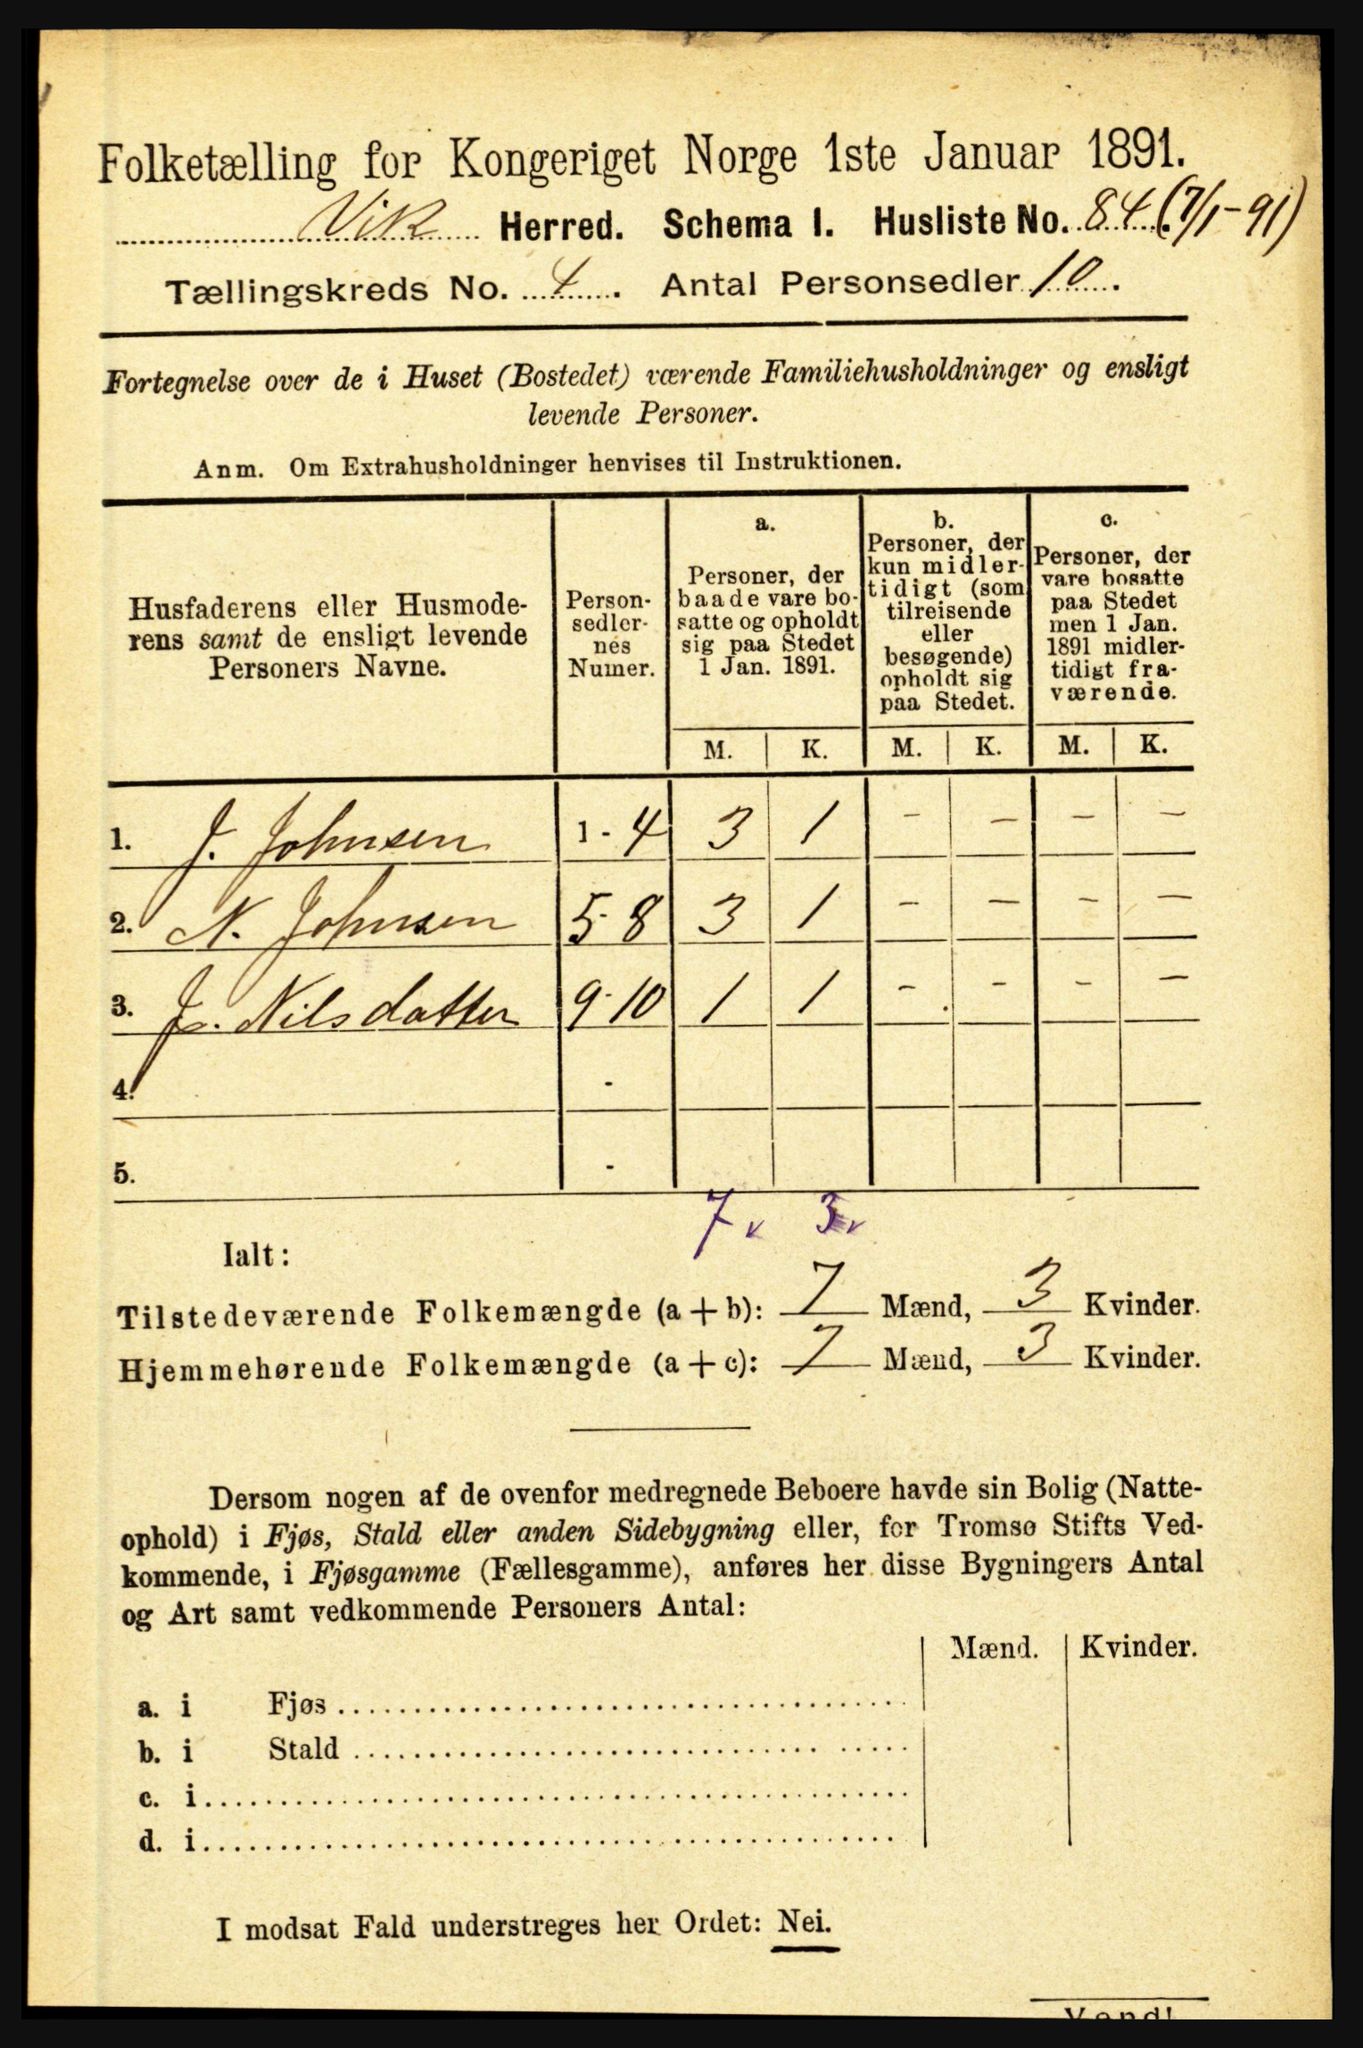 Folketælling for Kongeriget Norge 1ste Januar 1891.
Vik Herred. Schema I. Husliste No. 84 (7/1-91)
Tællingskreds No. 4. Antal Personsedler 10.
Fortegnelse over de i Huset (Bostedet) værende Familiehusholdninger og ensligt
levende Personer.
Anm. Om Extrahusholdninger henvises til Instruktionen.
Husfaderens eller Husmode-
rens samt de ensligt levende
Personers Navne.
Person-
sedler-
nes
Numer.
a.
Personer, der
baade vare bo-
satte og opholdt
sig paa Stedet
1 Jan. 1891.
b.
Personer, der
kun midler-
tidigt (som
tilreisende
eller
besøgende)
opholdt sig
paa Stedet.
c.
Personer, der
vare bosatte
paa Stedet
men 1 Jan.
1891 midler-
tidigt fra-
værende.
M. K. M. K. M. K.
1. J. Johnsen 1-4 3 1 - - - -
2. N. Johnsen 5-8 3 1 - - - -
3. J. Nilsdatter 9-10 1 1 - - - -
4. -
5. -
7 v 3 v
Ialt:
Tilstedeværende Folkemængde (a + b): 7 Mænd, 3 Kvinder.
Hjemmehørende Folkemængde (a + c): 7 Mænd, 3 Kvinder.
Dersom nogen af de ovenfor medregnede Beboere havde sin Bolig (Natte-
ophold) i Fjøs, Stald eller anden Sidebygning eller, for Tromsø Stifts Ved-
kommende, i Fjøsgamme (Fællesgamme), anføres her disse Bygningers Antal
og Art samt vedkommende Personers Antal:
Mænd. Kvinder.
a. i Fjøs
b. i Stald
c. i
d. i
I modsat Fald understreges her Ordet: Nei.
Vend!